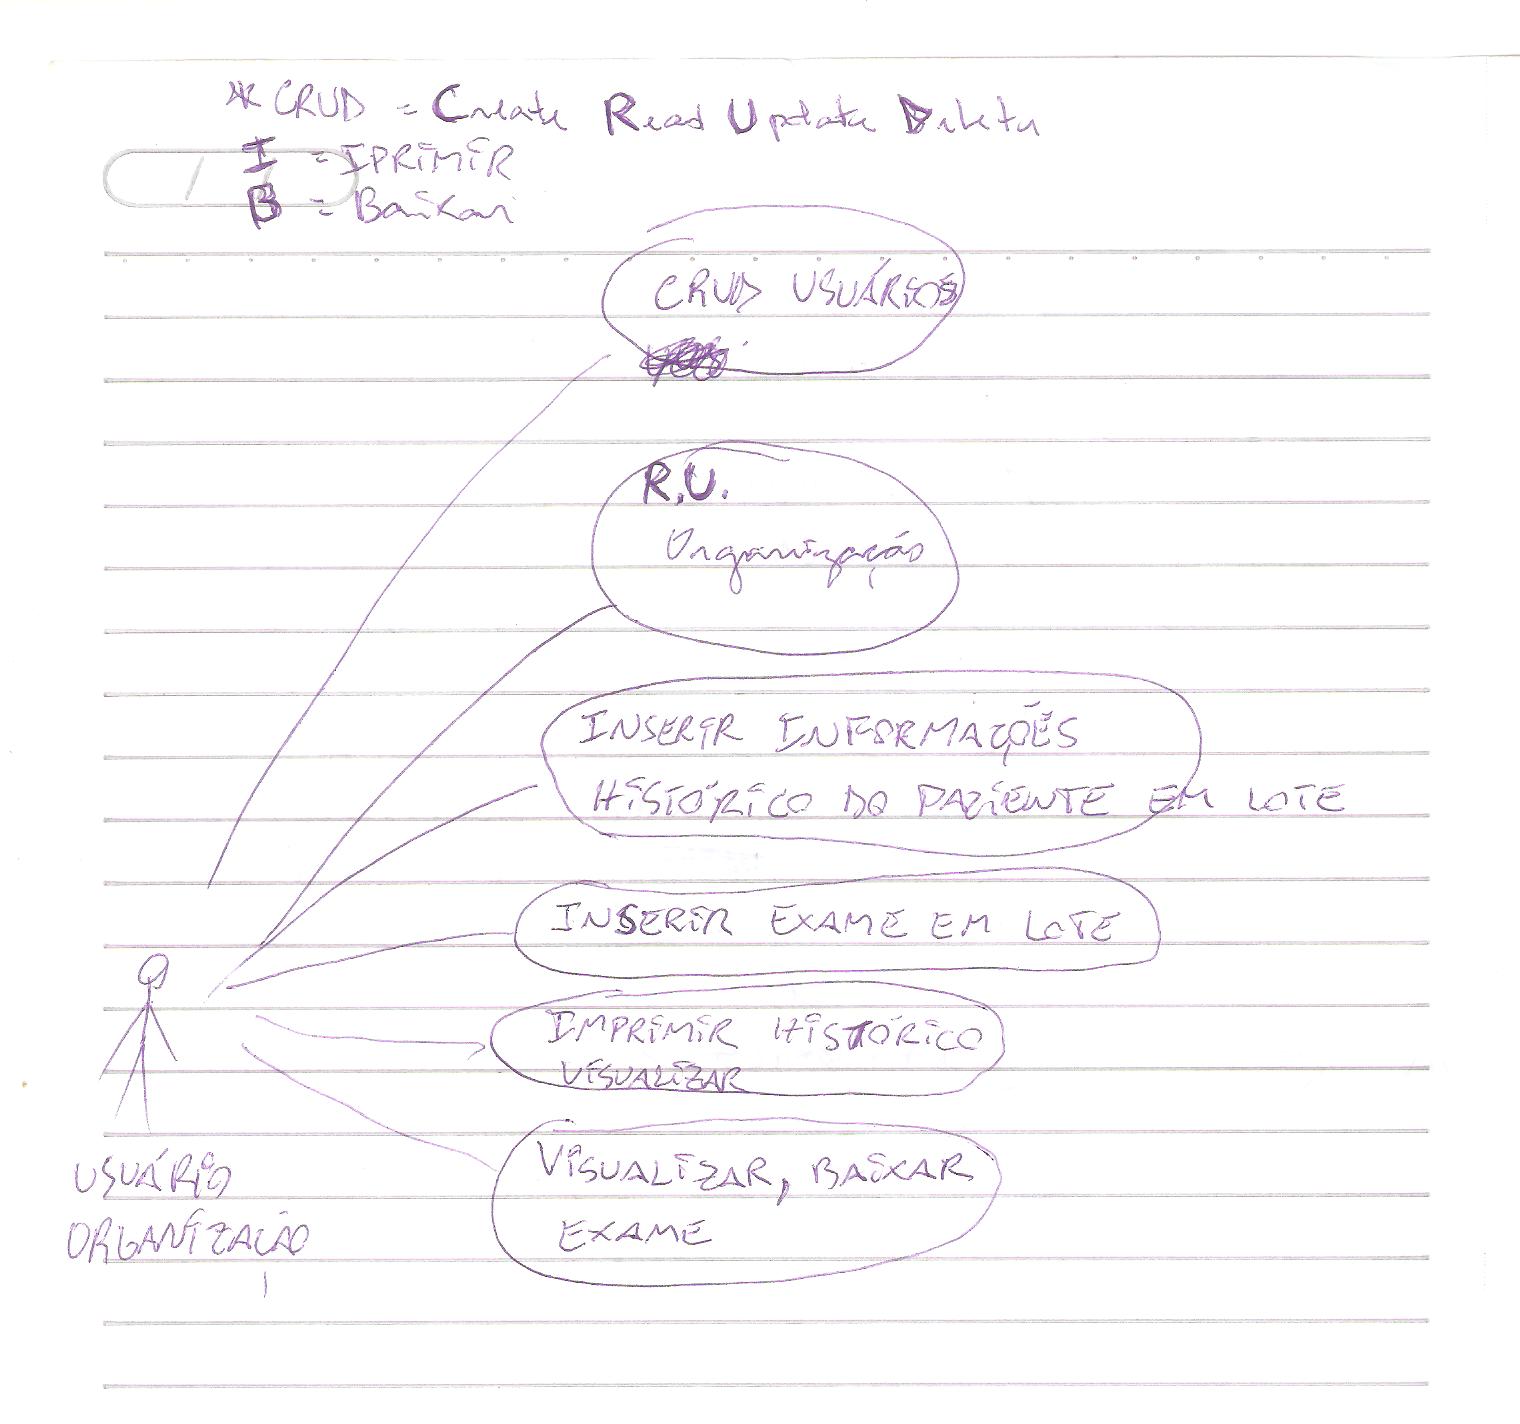 * CRUD = Create Read Update Delete
I = IPRIMIR
B = Baixar
CRUD USUÁRIOS
R.U.
Organização
INSERIR INFORMAÇÕES
HISTÓRICO DO PACIENTE EM LOTE
INSERIR EXAME EM LOTE
IMPRIMIR HISTÓRICO
VISUALIZAR
VISUALIZAR, BAIXAR
EXAME
USUÁRIO
ORGANIZAÇÃO